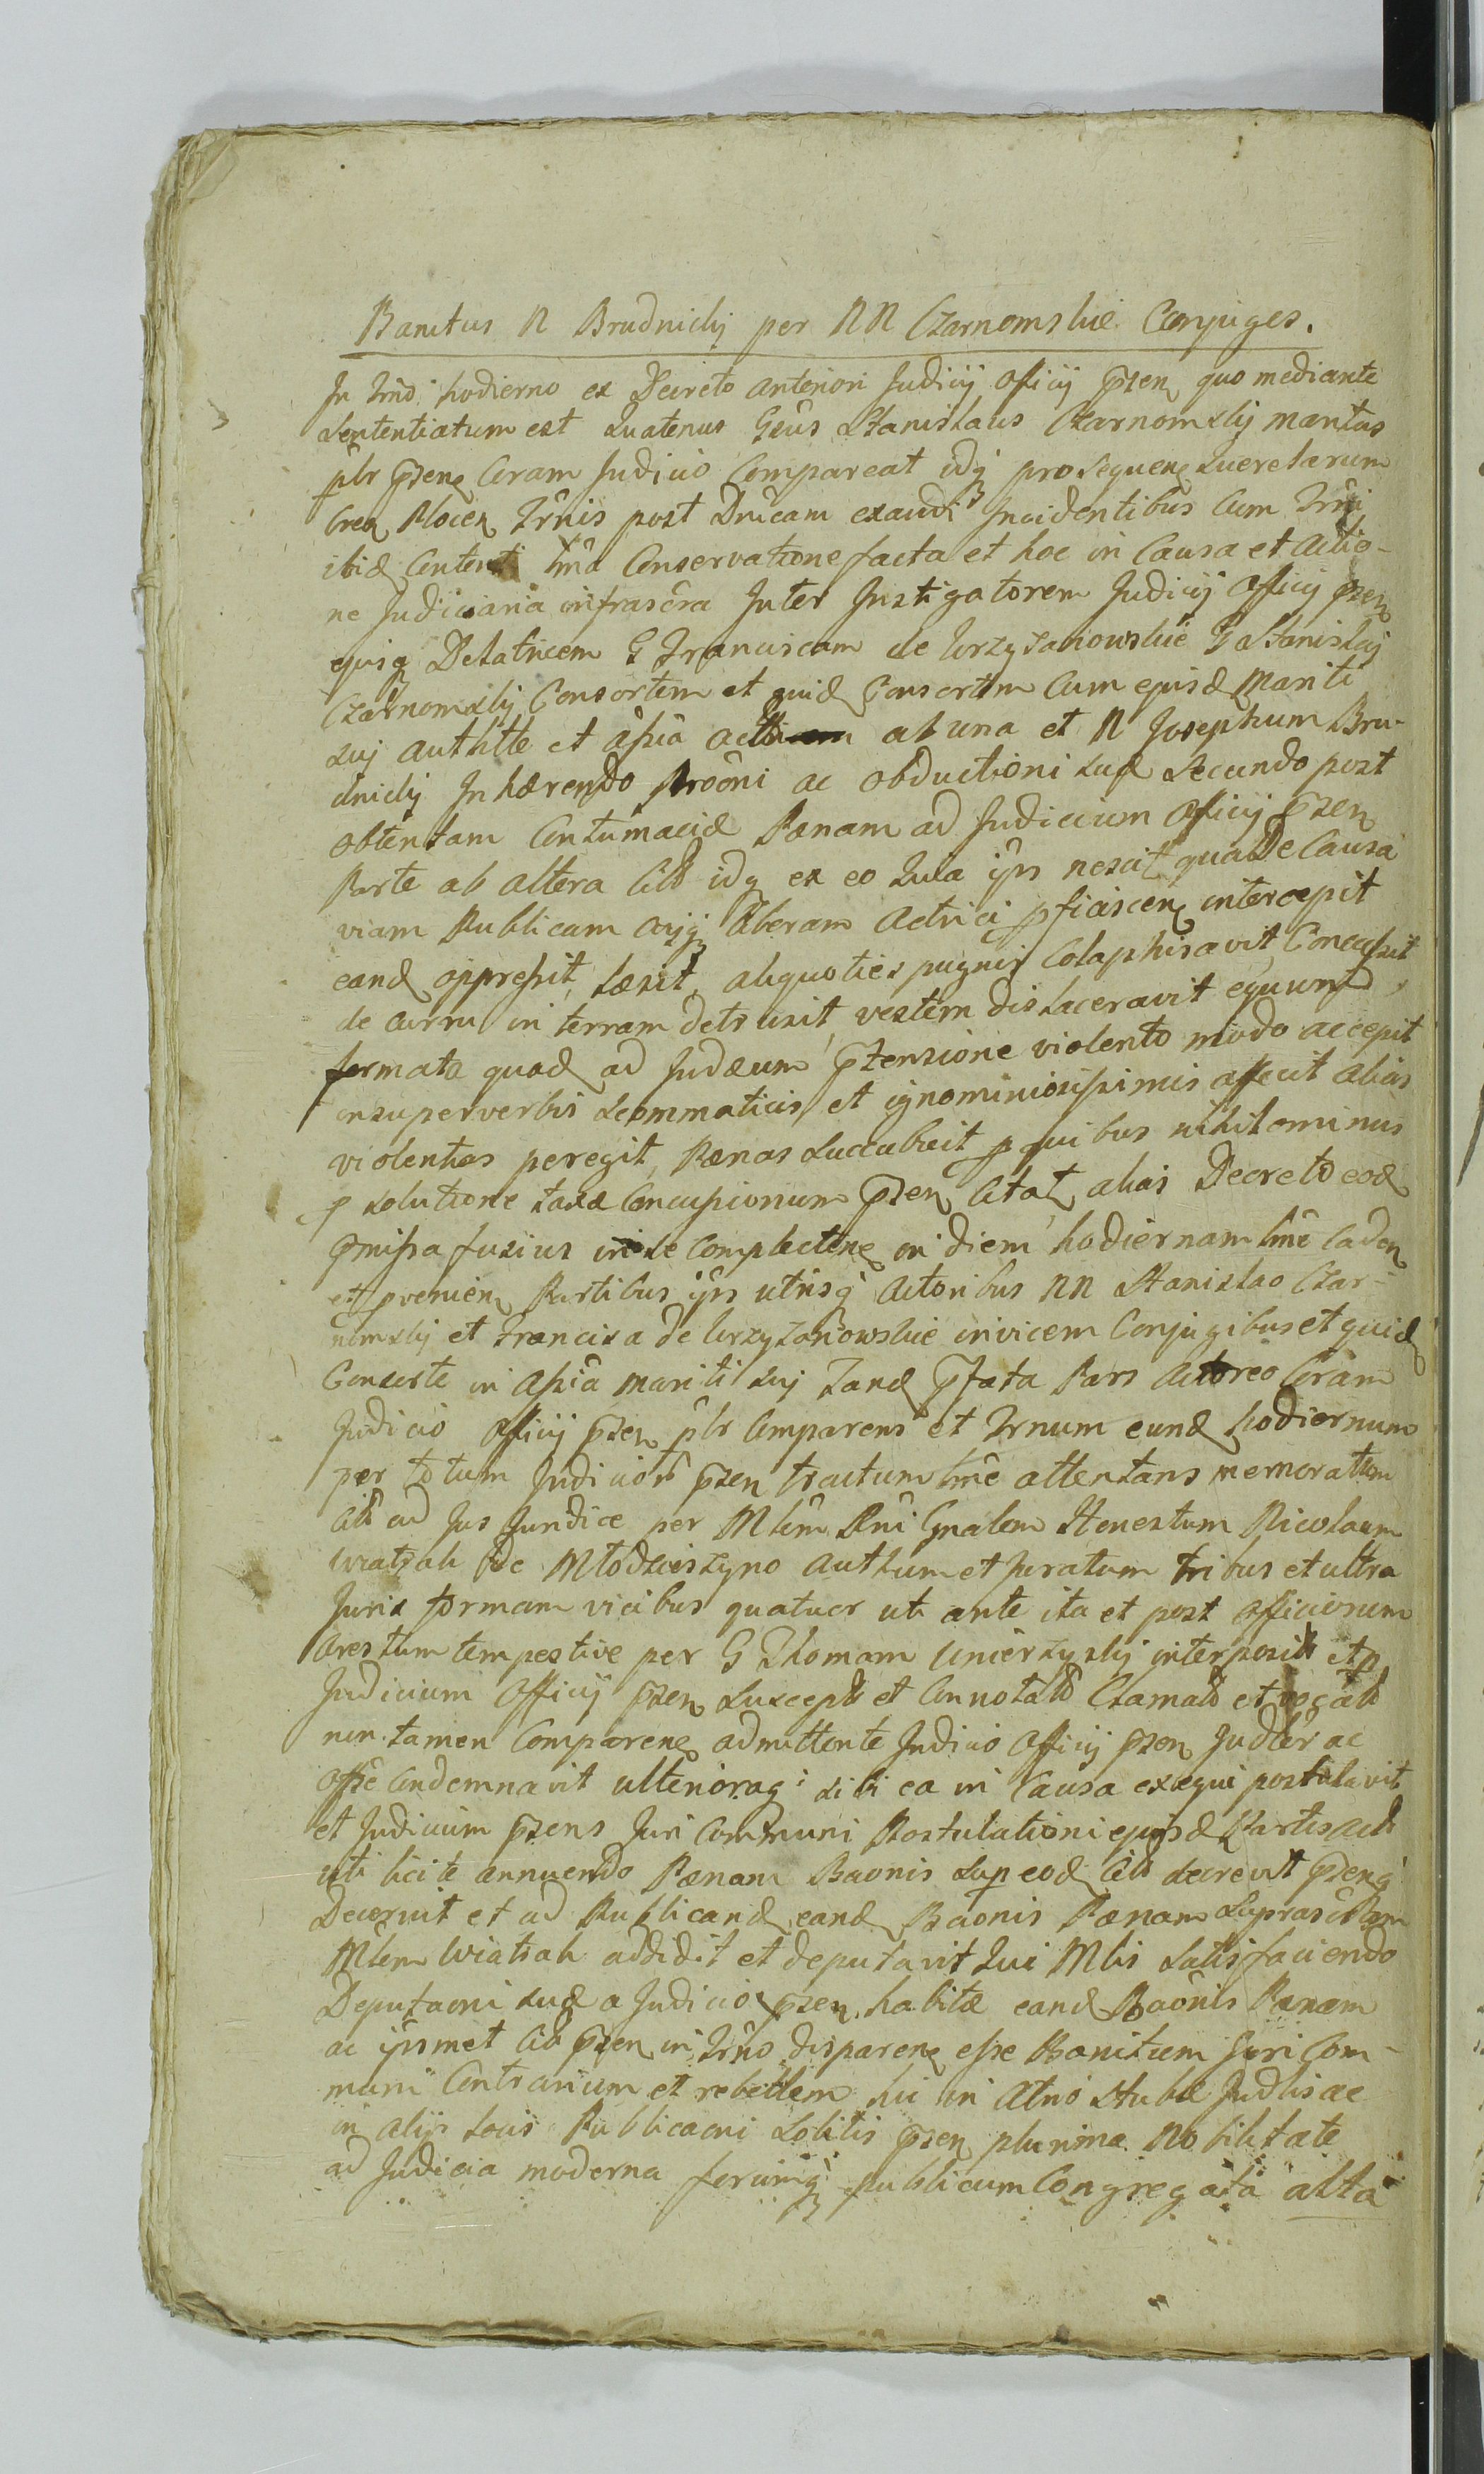 Banitus N Brudnicki per NN Czarnomskie Conjuges.
In Trno hodierno ex Decreto anteriori Judicij Officij pñsen quo mediante
Sententiatum est Quatenus Gsus Stanislaus Czarnomskij maritus
plr pñsen Coram Judicio Compareat idq prosequen Querelarum
Cren Plocen Trnis post Dnicam exaudi Incidentibus Cum Trni
ibid Content hña Conservatione facta et hoc in Causa et Actio-
ne Judiciaria infrascra Inter Instigatorem Judicij Officij pñsen
ejusq Delatricem G Franciscam de Krzyzanowskie G Stanislaj
Czarnomskij Consortem et quid Consortem Cum ejusd Mariti
suj authtte et assia ab una et N Josephum Bru-
dnicki Inhærendo Proõni ac obductioni suæ Secundo post
obtentam Contumaciæ Pænam ad Judicium Officij pñsen
Parte ab altera Citt idq ex eo Quia ipis nescit qua De Causa
viam Publicam cujq liberam Actrici pficiscen intercepit
eand oppressit, læsit, aliquoties pugnis Colaphisavit, Concussit
de curru in terram detrusit, vestem dislaceravit equumq
formata quad ad Judæum ptensione violento modo accepit
insuper verbis scommaticis et ignominiosissimis affecit alias
violentias peregit, Pænas succubuit p quibus nihilominus
p solutione taxæ Concussionum pñsen Citat, alias Decreto eod
pmissa fusius in se Complecten in diem hodiernam hñc Caden
et provenien Partibus ipis utrisq Actoribus NN Stanislao Czar-
nomskij et Francisca de Krzyzanowskie invicem Conjugibus et quid
Consorte in assia mariti suj Tand pfata Pars Actorea Coram
Judicio Officij pñsen plr Comparens et Trnum eund hodiernum
per totum Judiciorũ pñsen tractum hñc attentans memoratum
Citt ad Jus Juridice per Mlem Rni Gnalem Honestum Nicolaum
Wiatrak de Mlodzieszyno Authum et Juratum tribus et ultra
Juris formam vicibus quatuor uti ante ita et post officiorum
Arestum tempestive per G Thomam Unierzyskij interposit et p
Judicium Officij pñsen suscept et Connotatũ Clamatũ et vocatũ
non tamen Comparen admittente Judicio Officij pñsen Judlr ac
Offse Condemnavit ulterioraq sibi ea in Causa exequi postulavit
et Judicium pñsens Juri Communi Postulationi ejusd Partis act
uti licite annuendo Pænam Baonis Sup eod Citt decrevit pñsenq
Decernit et ad Publicand eand Baonis Pænam Suprascrtam
Mlem Wiatrak addidit et deputavit Qui Mlis satisfaciendo
Deputaoni suæ a Judicio pñsen habitæ eand Baonis Pænam
ac ipsmet Citt pñsen in Trno disparen esse Banitum Juri Com-
muni Contrarium et rebellem hic in Atrio Stubæ Judlis ac
in alijs Locis Publicaoni solitis pñsen plurima Nobilitate
ad Judicia moderna forumq publicum Congregata alta